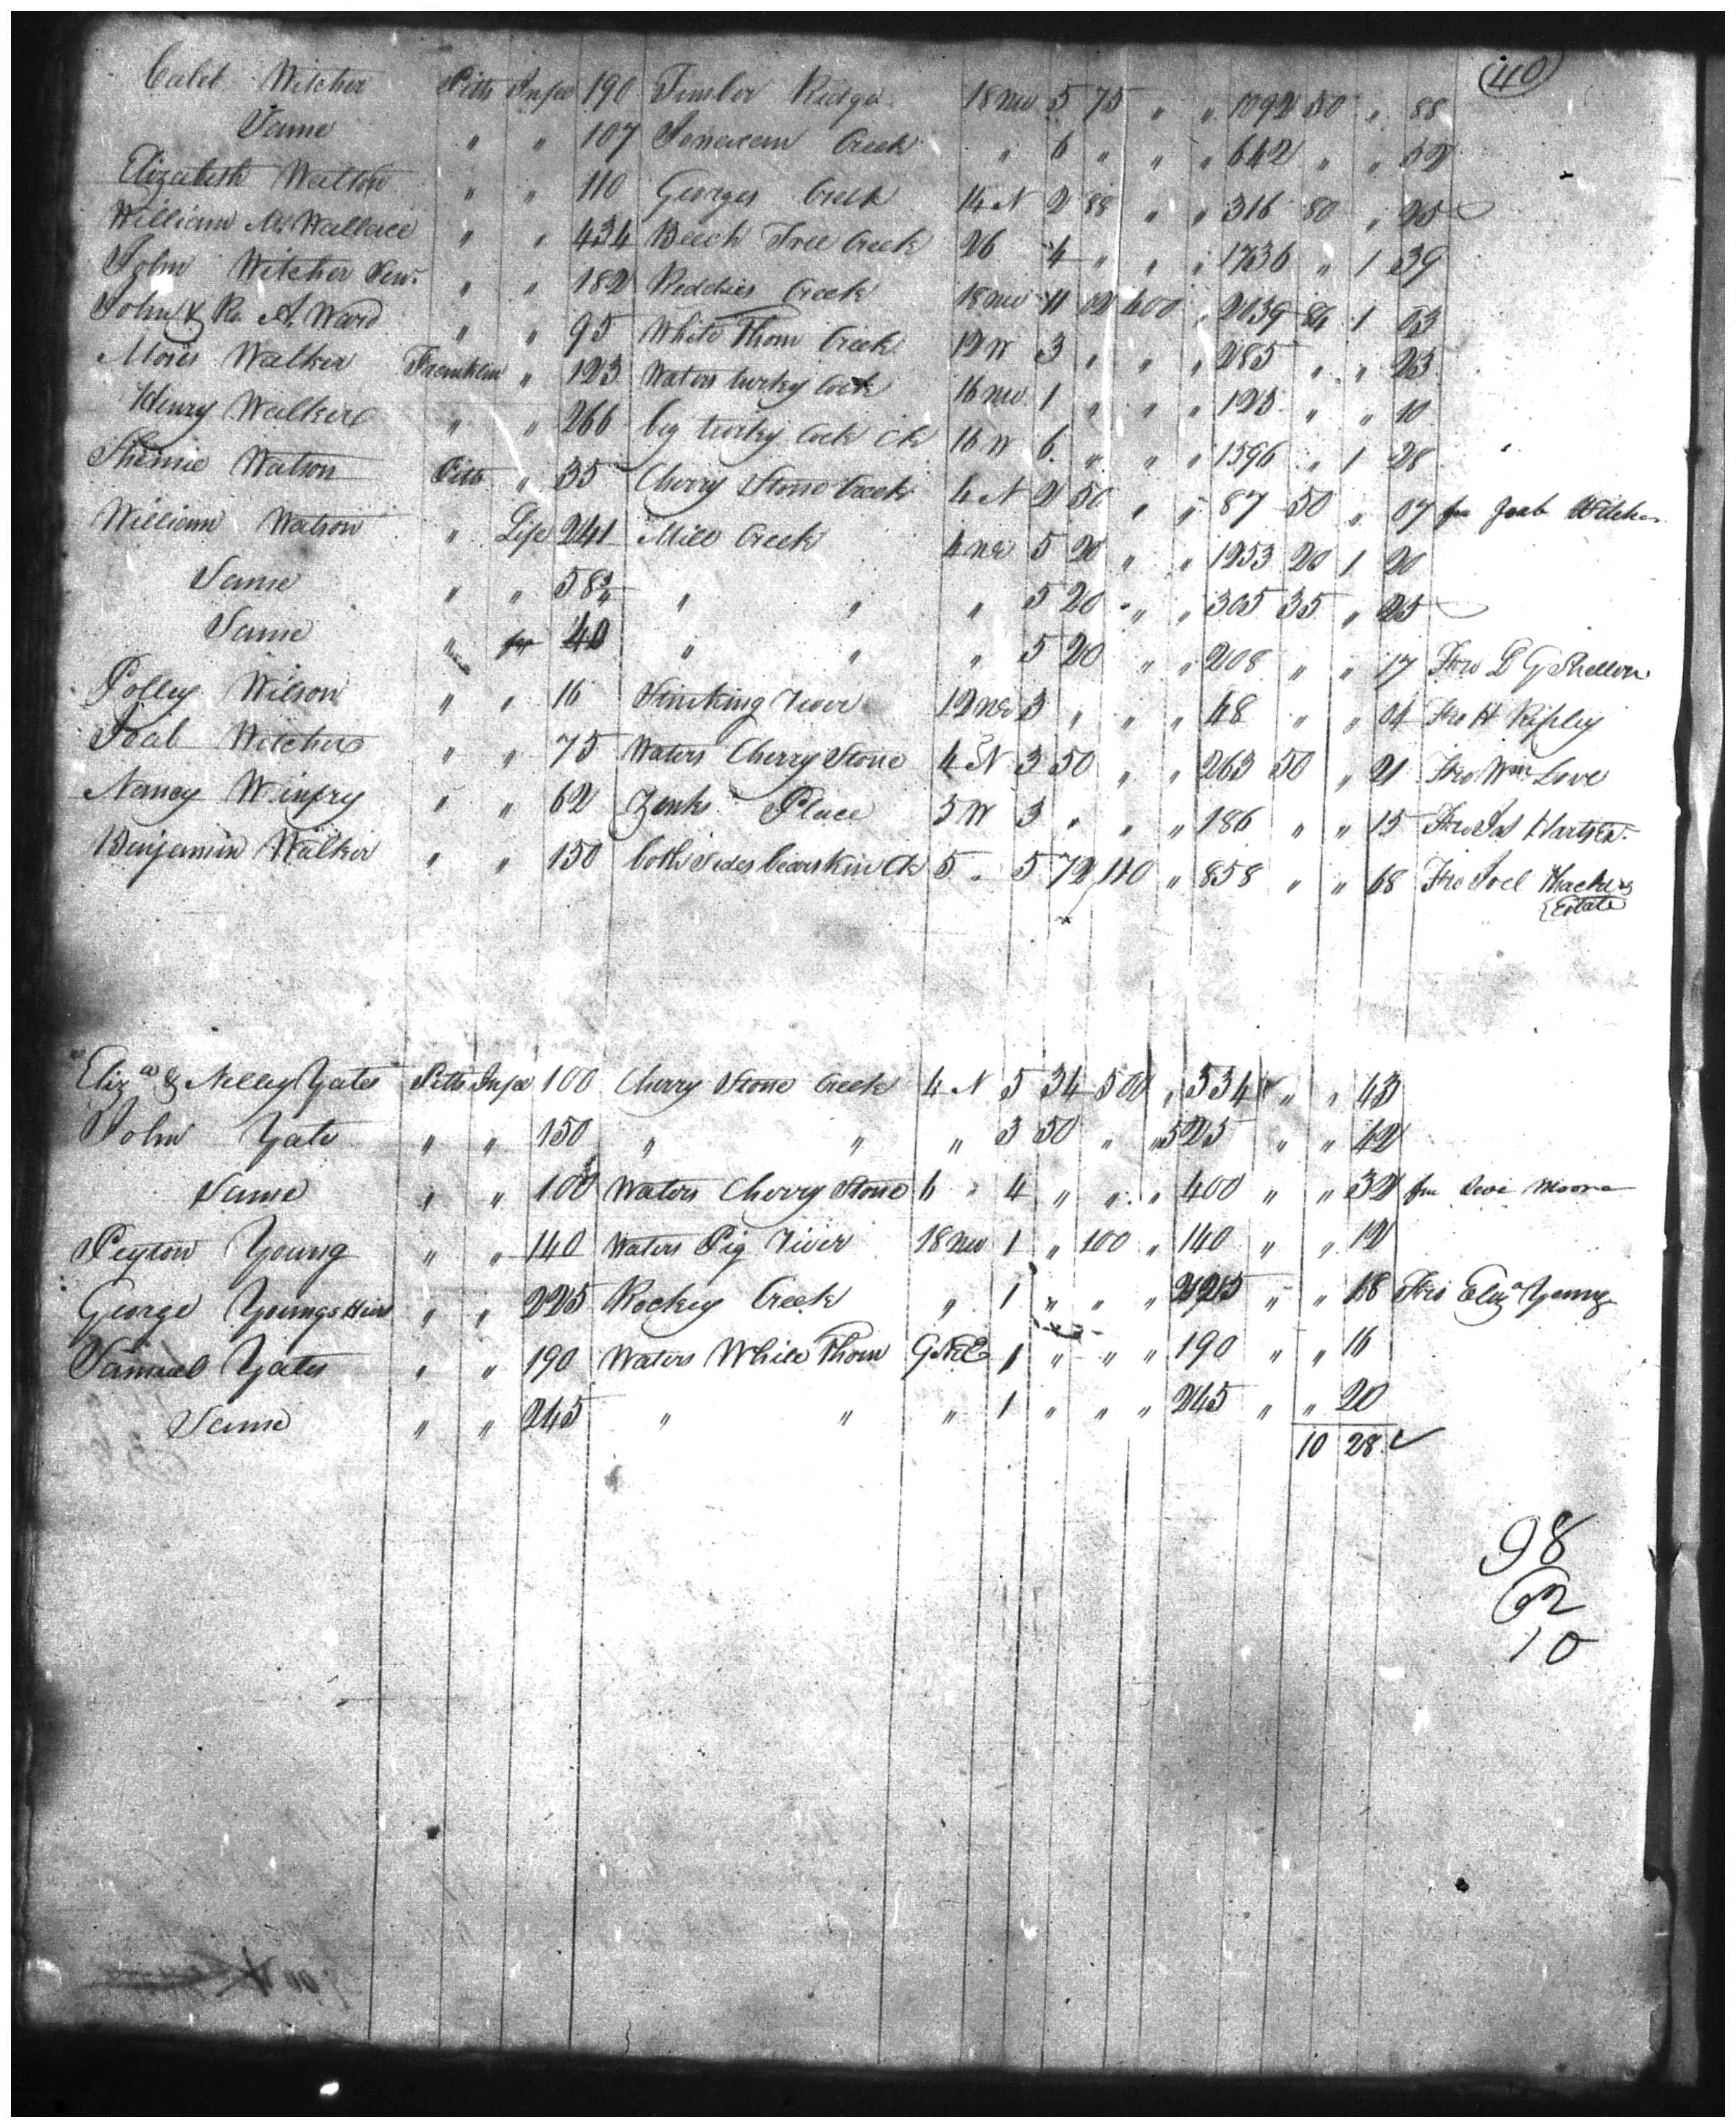 (40)
Caleb Witcher Pitts In fee 190 Timber Ridge 18 NW 5 75 " " 1092 50 " 88
Same " " 107 Tomahawk Creek " 6 " " " 642 " " 52
Elizabeth Walton " " 110 Georges Creek 14 N 2 88 " " 316 80 " 25
William M. Wallace " " 434 Beech Tree Creek 26 4 " " " 1736 " 1 39
John Witcher Senr. " " 182 Reddies Creek 18 NW 11 02 400 " 2039 84 1 63
John & R. A. Ward " " 95 White Thorn Creek 12 W 3 " " " 285 " " 23
Moses Walker Franklin " 123 Waters turkey Cock 16 NW 1 " " " 123 " " 10
Henry Walker " " 266 big turkey Cock Ck 16 W 6 " " " 1596 " 1 28
Watson Pitts " 35 Cherry Stone Creek 4 N 2 50 " " 87 50 " 07 fm Joab Witcher
William Watson " Life 241 Mill Creek 4 NE 5 20 " " 1253 20 1 20
Same " " 58¾ " " " 5 20 " " 305 35 " 25
Same " fee 40 " " " 5 20 " " 208 " " 17 Fro D G Shelton
Polley Wilson " " 16 Stinking River 12 NE 3 " " " 48 " " 04 Fro H Ripley
Joab Witcher " " 75 Waters Cherry Stone 4 N 3 50 " " 263 50 " 21 Fro Wm Love
Nancy Winfry " " 62 Zenks Place 5 W 3 " " " 186 " " 15 Fro Jas Hart
Benjamin Walker " " 150 both Sides bearskin Ck 5 " 5 72 110 " 858 " " 68 Fro Joel Thackers
Estate
Eliza & Nelley Yates Pitts In fee 100 Cherry Stone Creek 4 N 5 34 500 " 534 " " 43
John Yates " " 150 " " " 3 50 " " 525 " " 42
Same " " 100 Waters Cherry Stone 6 " 4 " " " 400 " " 32 fm Levi Moore
Peyton Young " " 140 Waters Pig River 18 NW 1 " 100 " 140 " " 12
George Youngs Heirs " " 225 Rockey Creek " 1 " " " 225 " " 18 Fro Eliza Young
Samuel Yates " " 190 Waters White Thorn 9 NE 1 " " " 190 " " 16
Same " " 245 " " " 1 " " " 245 " " 20
10 28 ✓
98
62
10